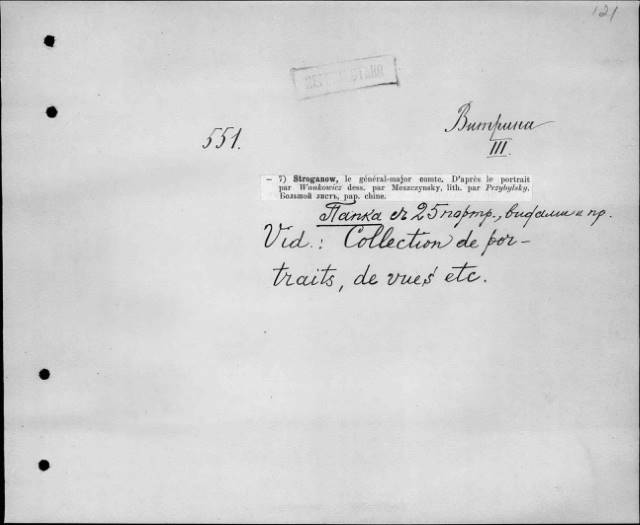 121
551.
Витрина
III.
— 7) Stroganow, le général-major comte. D'après le portrait
par Wankowicz dess. par Meszczynsky, lith. par Przybylsky.
Большой листъ, pap. chine.
Папка съ 25 портр., видами и пр.
Vid.: Collection de por-
traits, de vues etc.